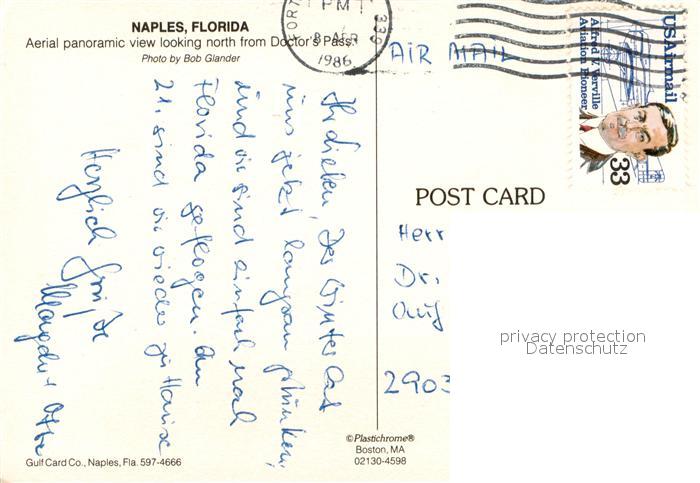 NAPLES, FLORIDA
Aerial panoramic view looking north from Doctor's Pass.
Photo by Bob Glander
FORT
PM
8 APR
1986
339
AIR MAIL
USAirmail
Alfred V. Verville
Aviation Pioneer
33
POST CARD
Ihr Lieben, der Winter hat
uns jetzt langsam
und wir sind einfach nach
Florida geflogen. Am
21. sind wir wieder zu Hause
Herzlich Grüße
Herr
Dr.
2903
privacy protection
Datenschutz
©Plastichrome®
Boston, MA
02130-4598
Gulf Card Co., Naples, Fla. 597-4666